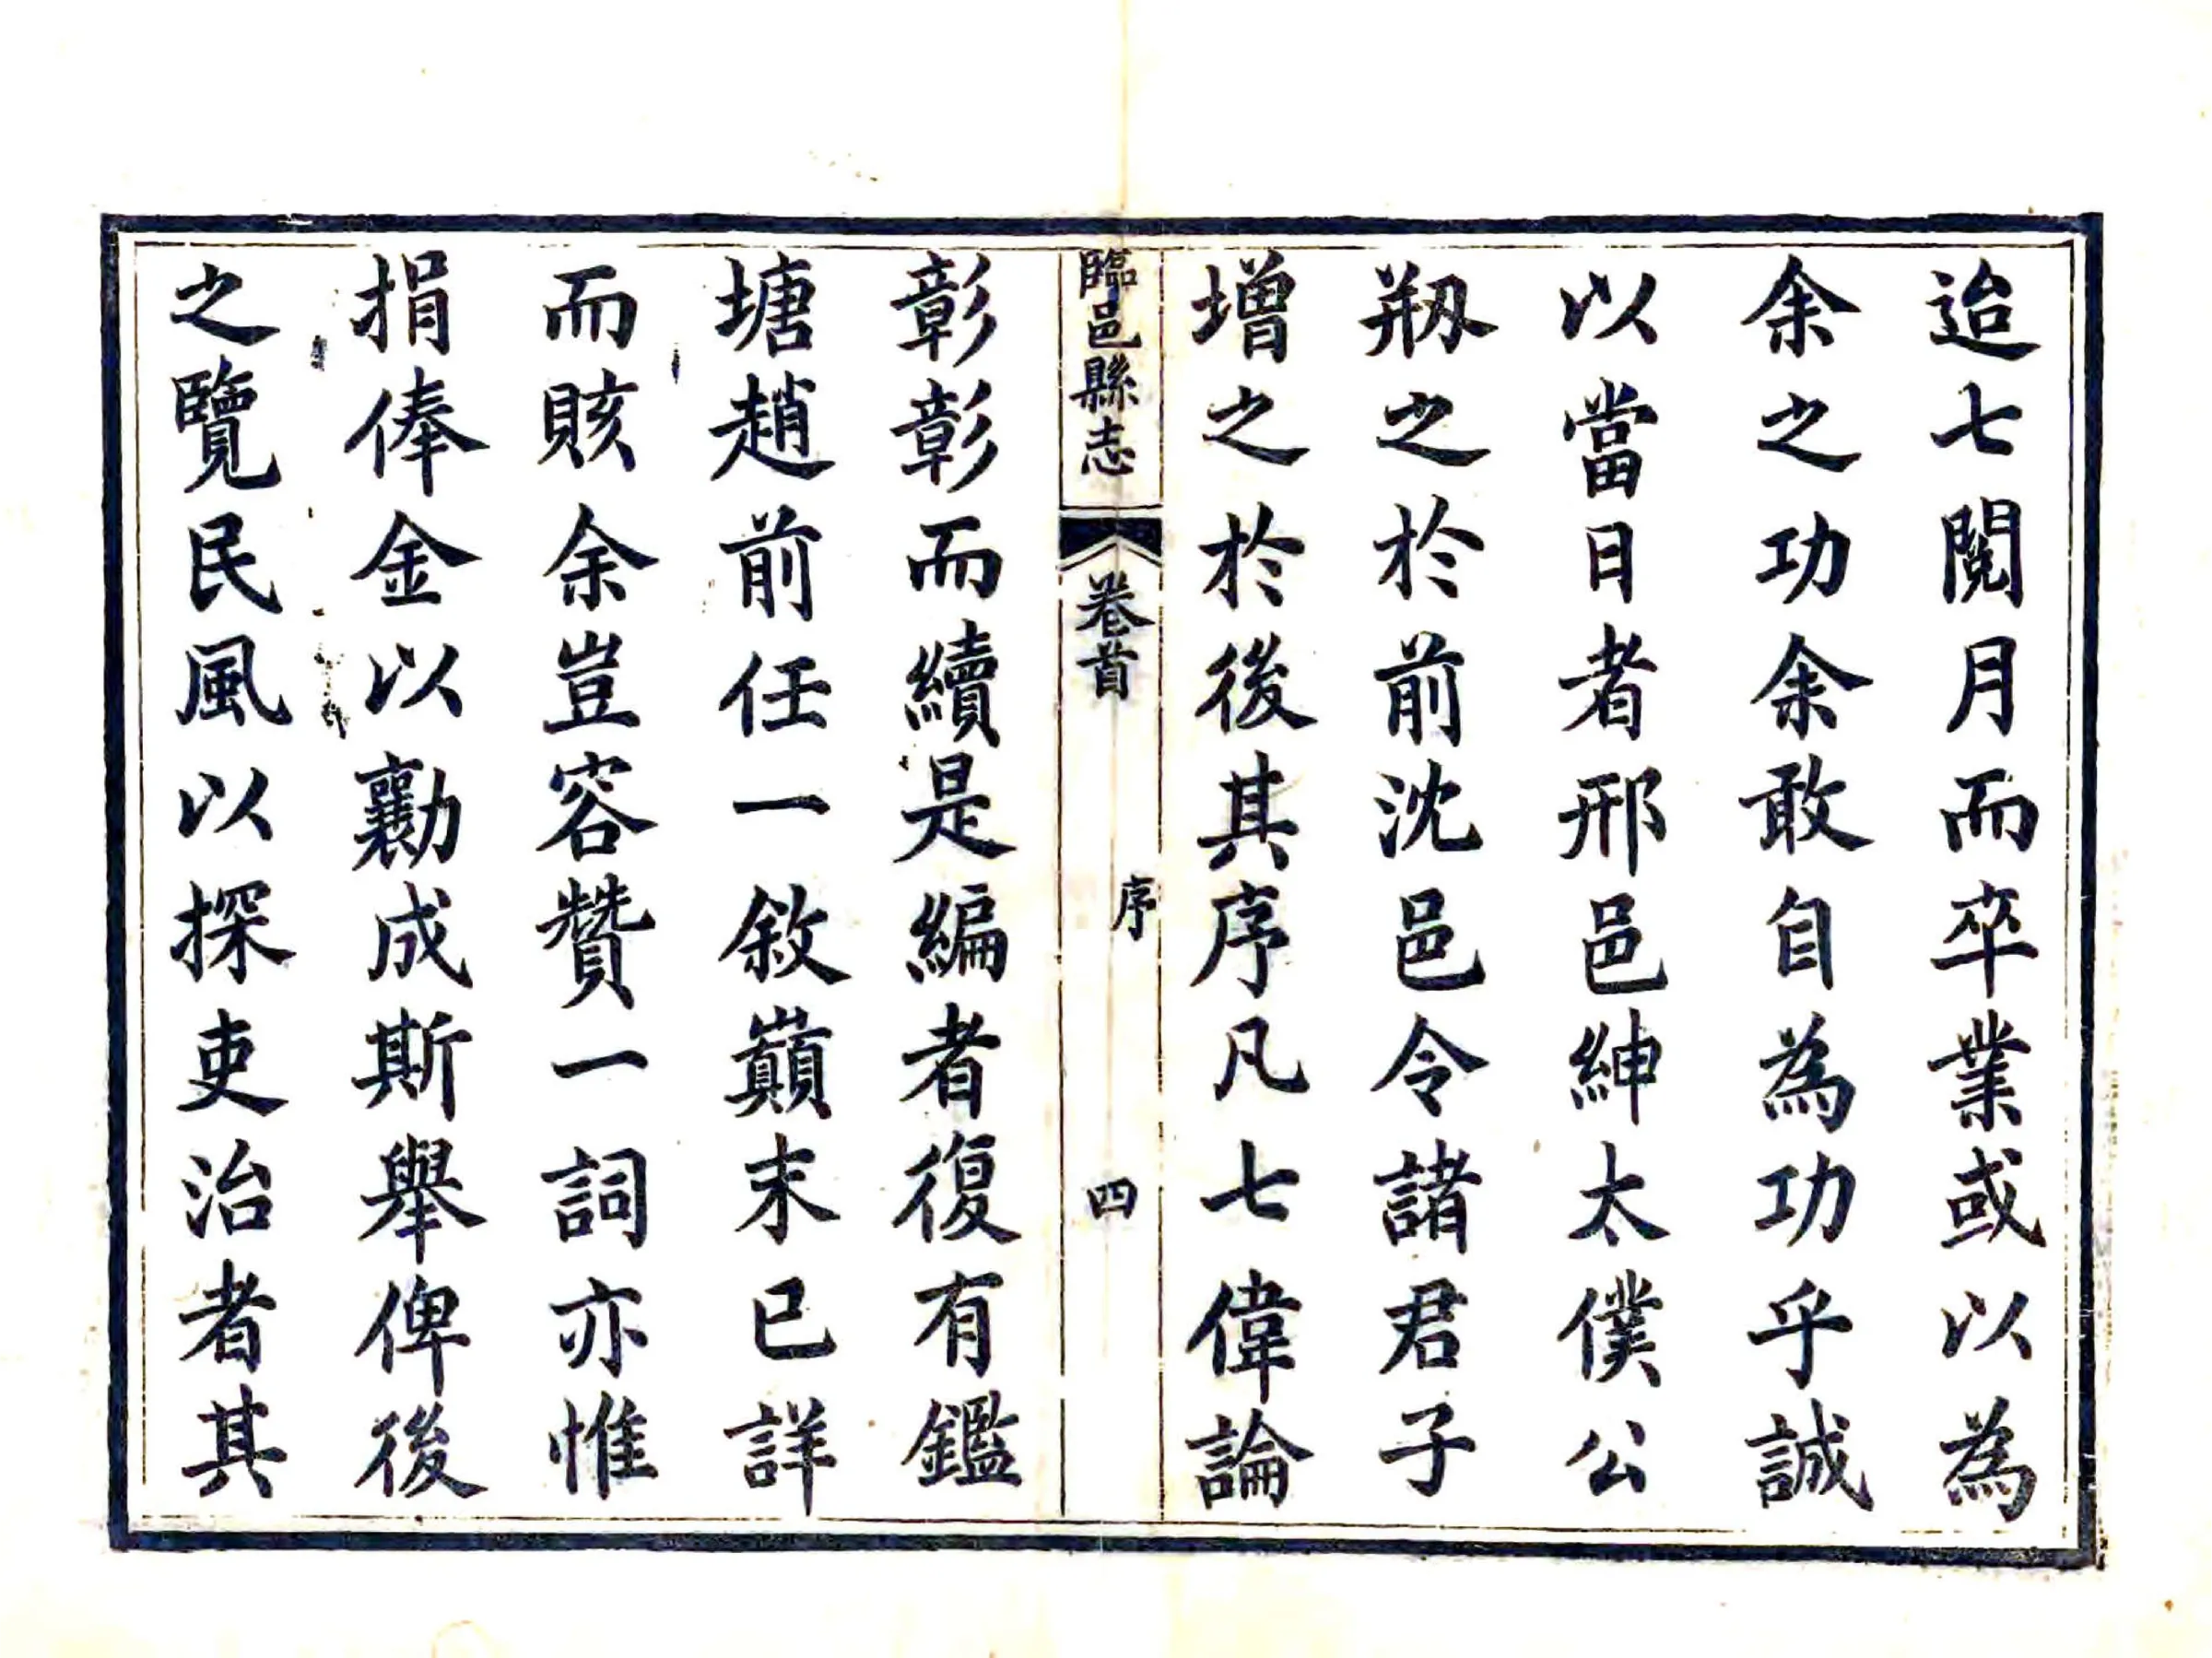 迨七閱月而卒業或以為
余之功余敢自為功乎誠
以當日者邢邑紳太僕公
剏之於前沈邑令諸君子
增之於後其序凡七偉論
臨邑縣志 卷首 序 四
彰彰而續是編者復有鑑
塘趙前任一敘巔末已詳
而賅余豈容贊一詞亦惟
捐俸金以勷成斯舉俾後
之覽民風以探吏治者其